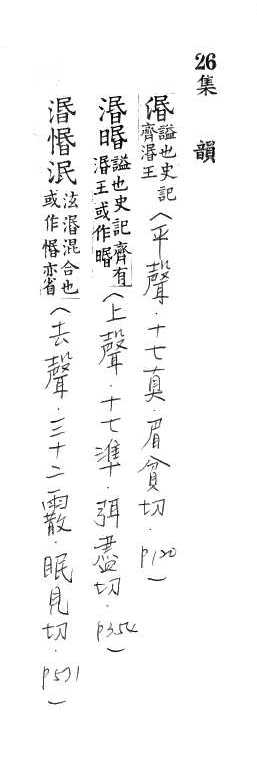 26 集韻
緡 謚也史記齊湣王（平聲．十七真．眉貧切．P120）
湣暋 謚也史記齊有湣王或作暋（上聲．十七準．弭盡切．P354）
湣惽泯 泫湣混合也或作惽亦省（去聲．三十二霰．眠見切．P571）